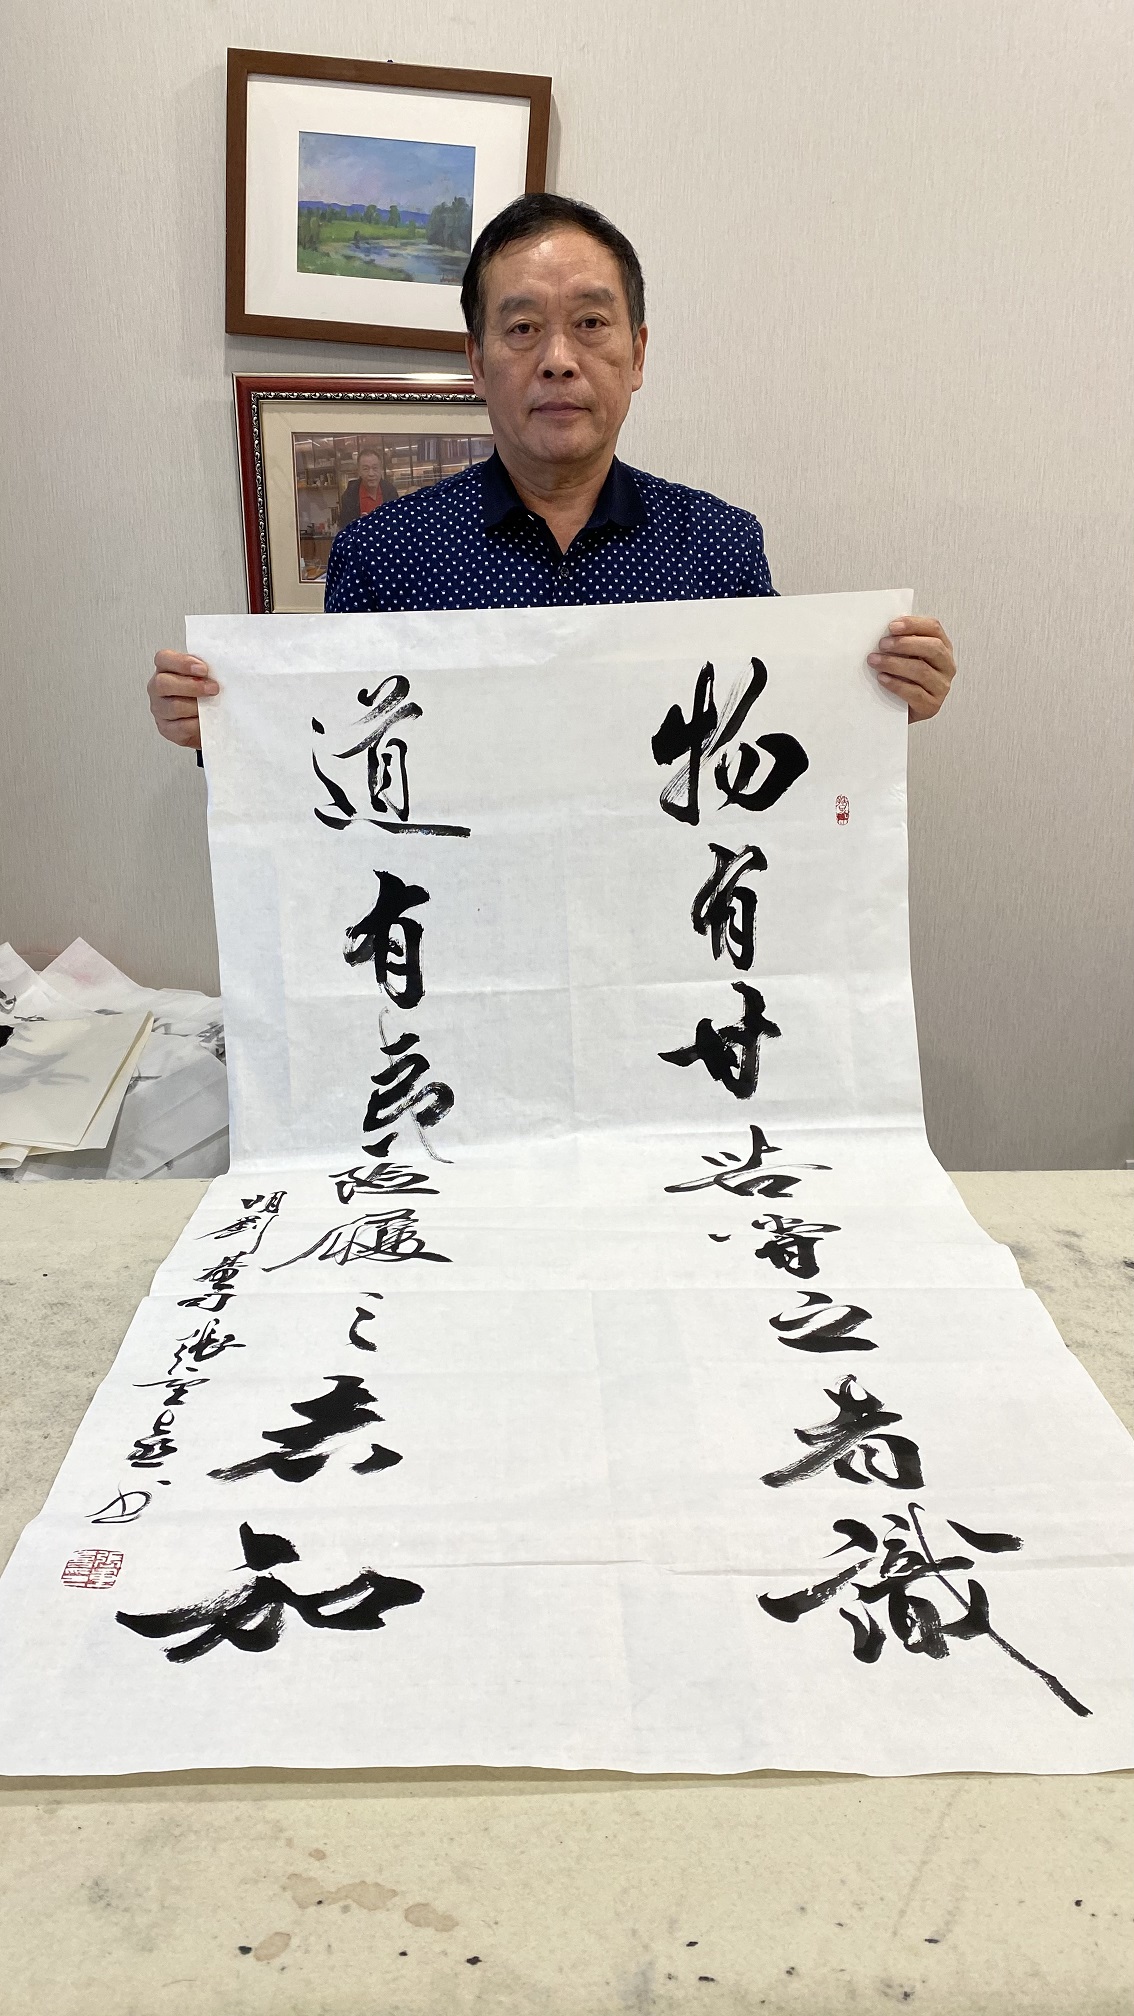 物有甘苦嘗之者識
道有夷險履之者知
明劉基句張雲书